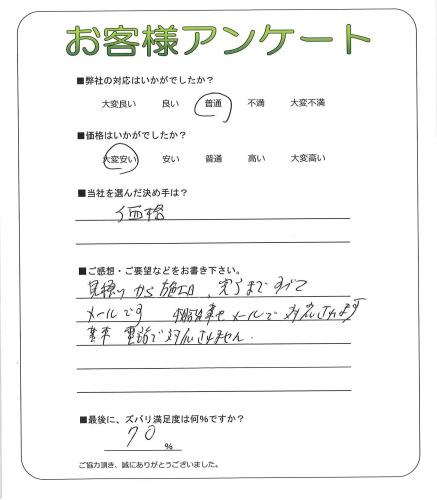 お客様アンケート
■弊社の対応はいかがでしたか?
大変良い 良い 普通 不満 大変不満
■価格はいかがでしたか?
大変安い 安い 普通 高い 大変高い
■当社を選んだ決め手は?
価格
■ご感想・ご要望などをお書き下さい。
見積りから施工日、完了まですべて
メールです メールで対応されます
基本 電話で対応されません.
■最後に、ズバリ満足度は何%ですか?
70 %
ご協力頂き、誠にありがとうございました。